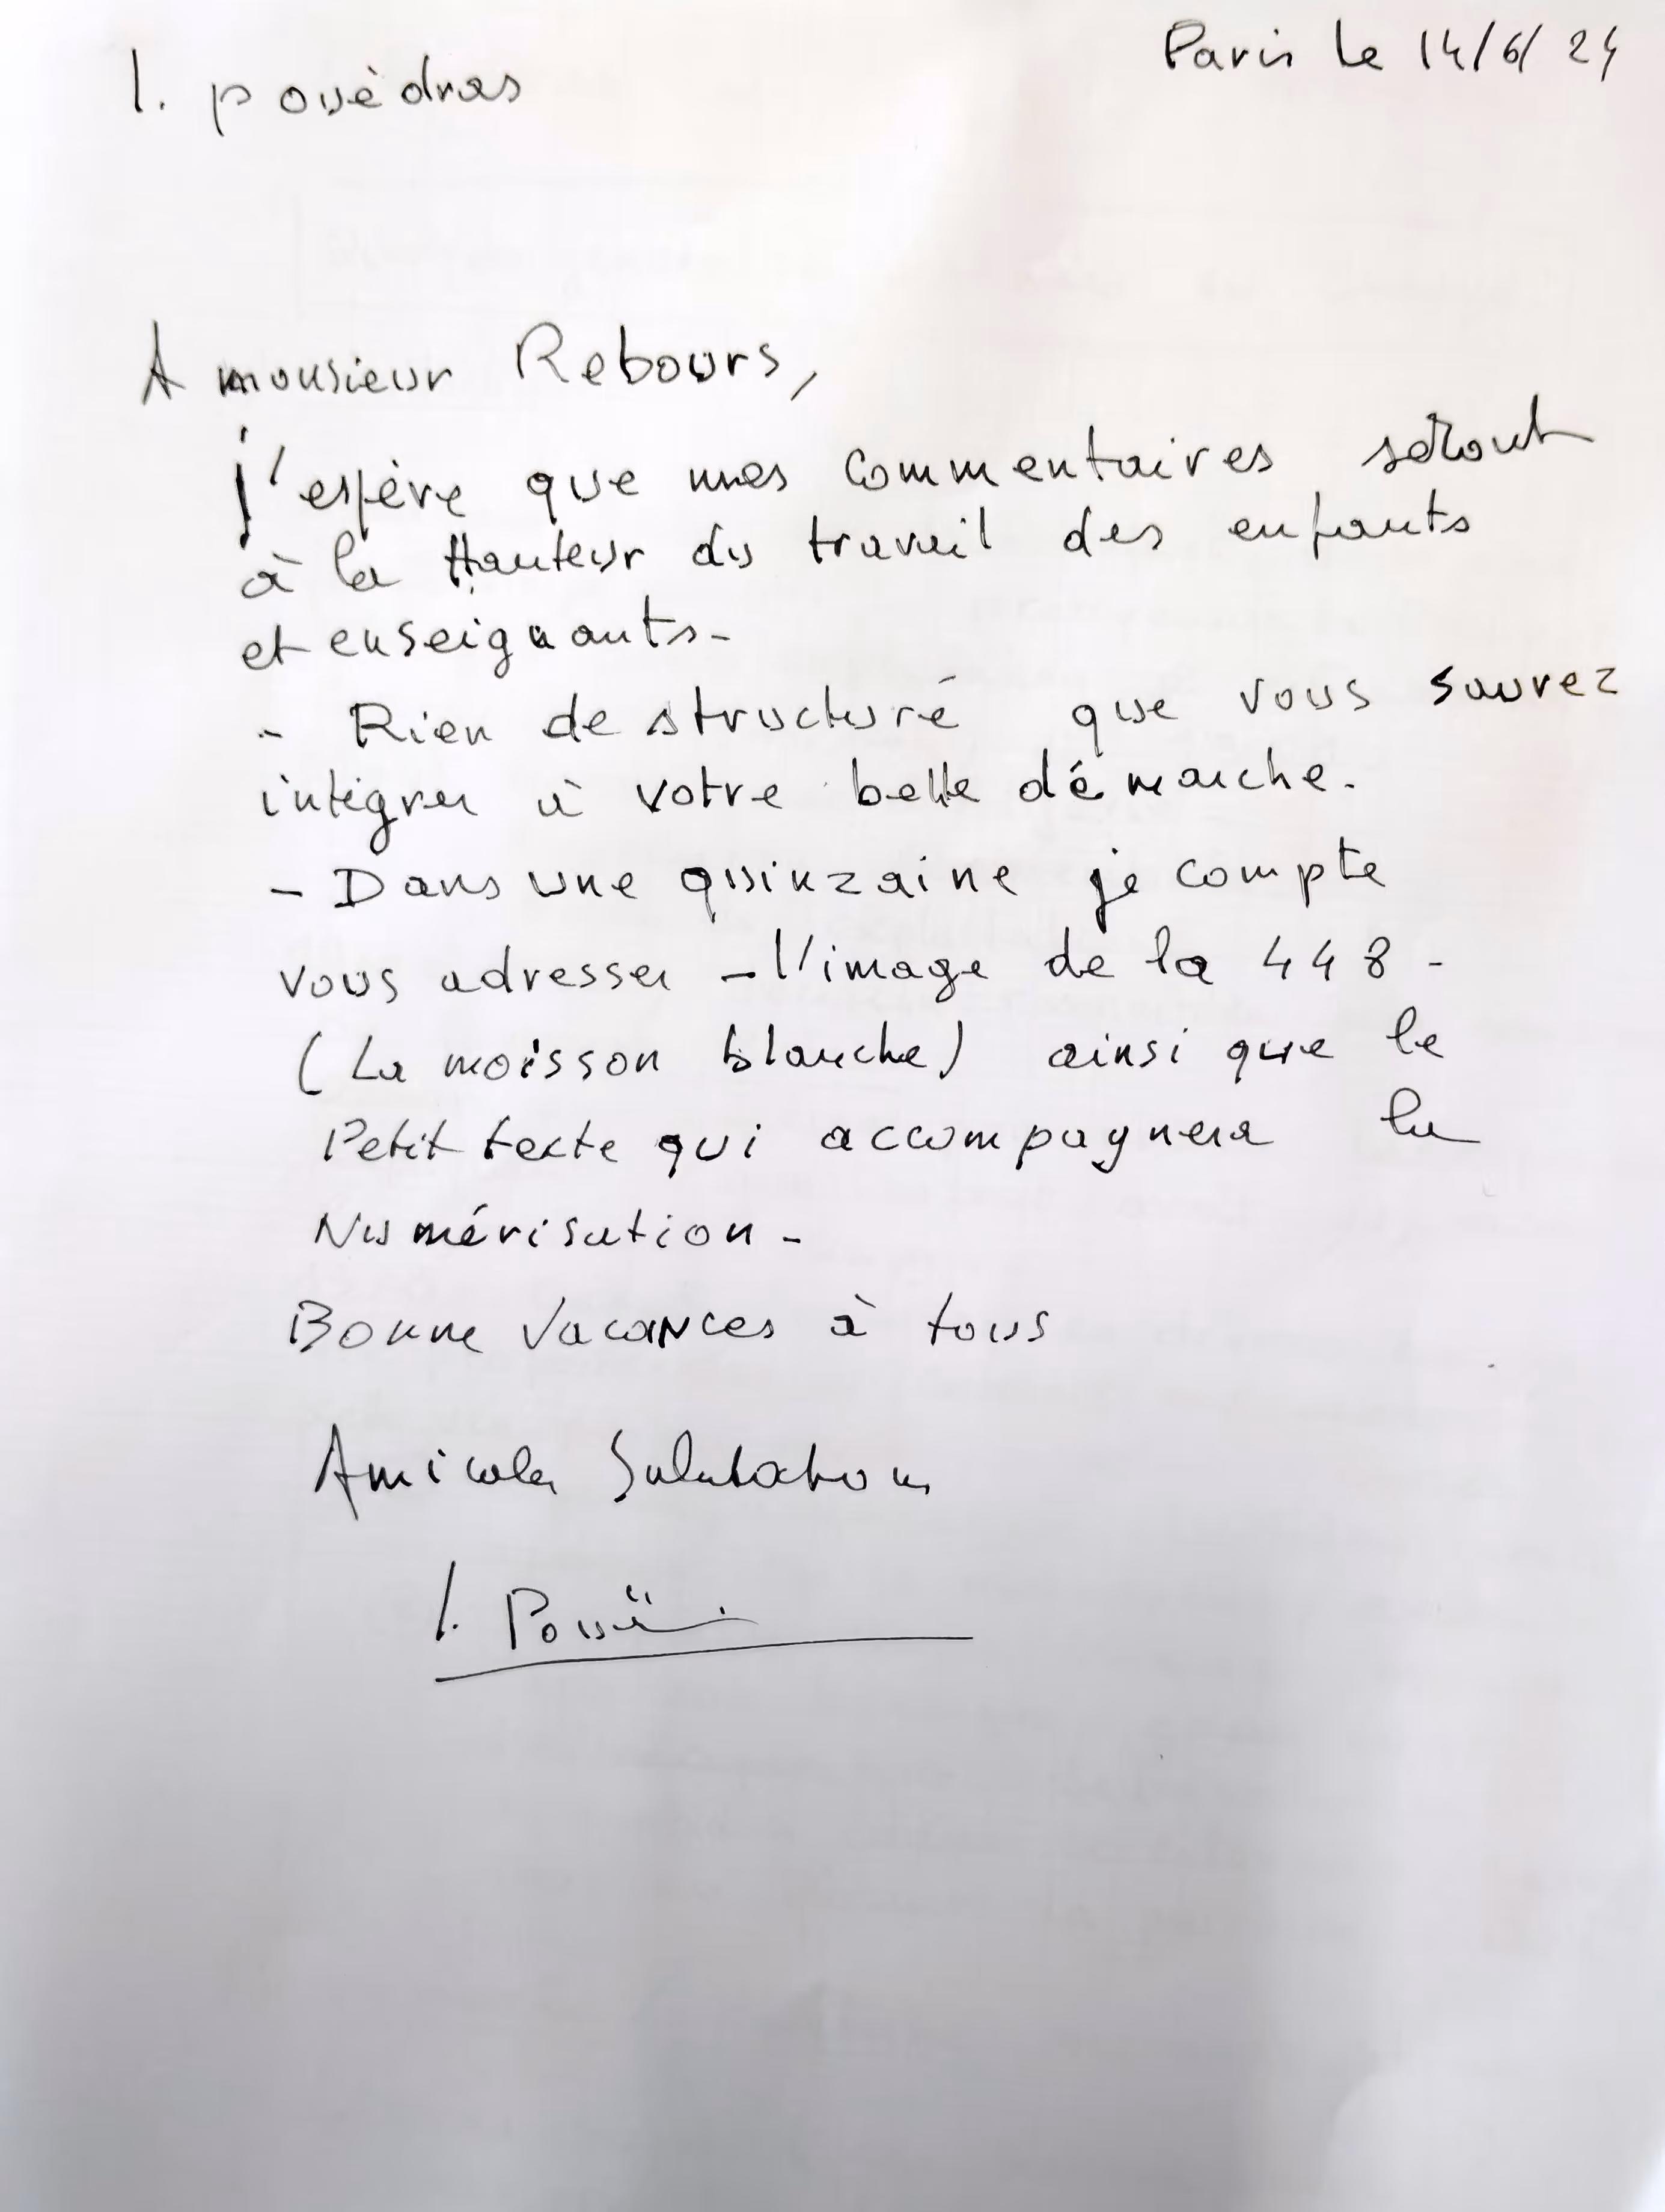 I. pouëdras
Paris le 14/6/24
A monsieur Rebours,
j'espère que mes commentaires seront
à la Hauteur du travail des enfants
et enseignants-
- Rien de structuré que vous saurez
intégrer à votre belle démarche.
- Dans une quinzaine je compte
vous adresser - l'image de la 448 -
(La moisson blanche) ainsi que le
Petit texte qui accompagnera la
Numérisation -
Bonne Vacances à tous
Amicales Salutations
I.